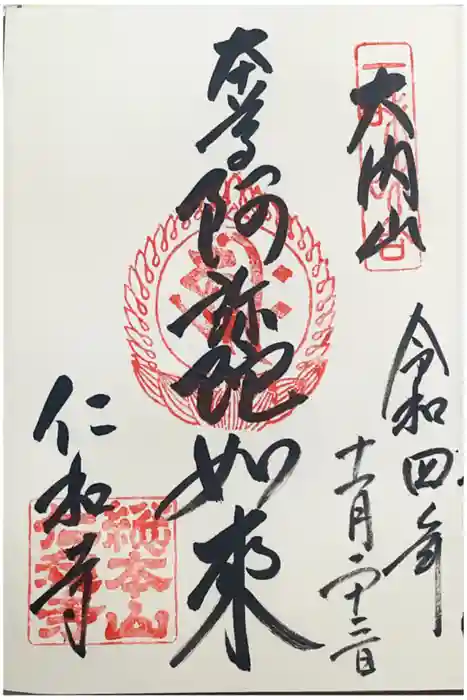 大内山
令和四年
十一月二十二日
本尊阿弥陀如来
仁和寺
総本山
仁和寺